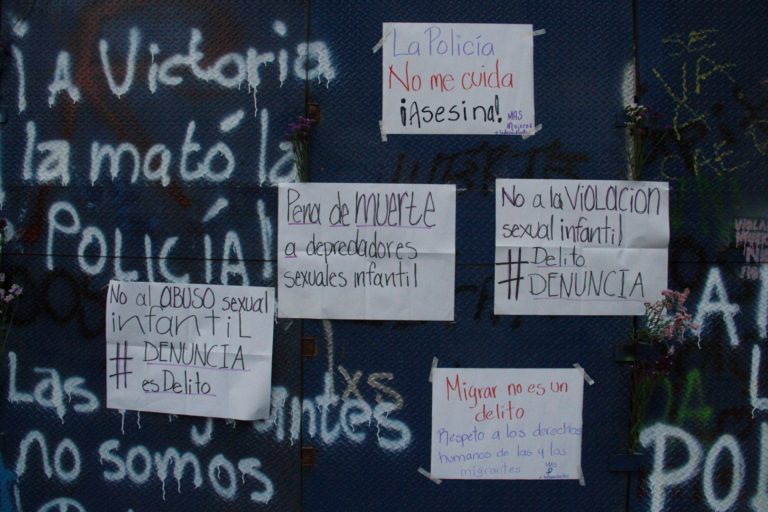 ¡A Victoria
la mató la
POLICÍA!
Las
no somos
La Policía
No me cuida
¡Asesina!
MAS
Mujeres
Pena de MUERTE
a depredadores
sexuales infantil
No a la VIOLACION
sexual infantil
# Delito
DENUNCIA
No al ABUSO sexual
infantil
# DENUNCIA
es Delito
Migrar no es un
delito
Respeto a los derechos
humanos de las y las
migrantes
MAS